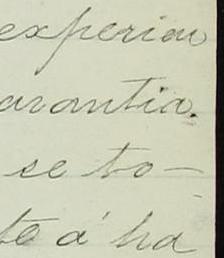 experien
arantia.
se to-
te á ha